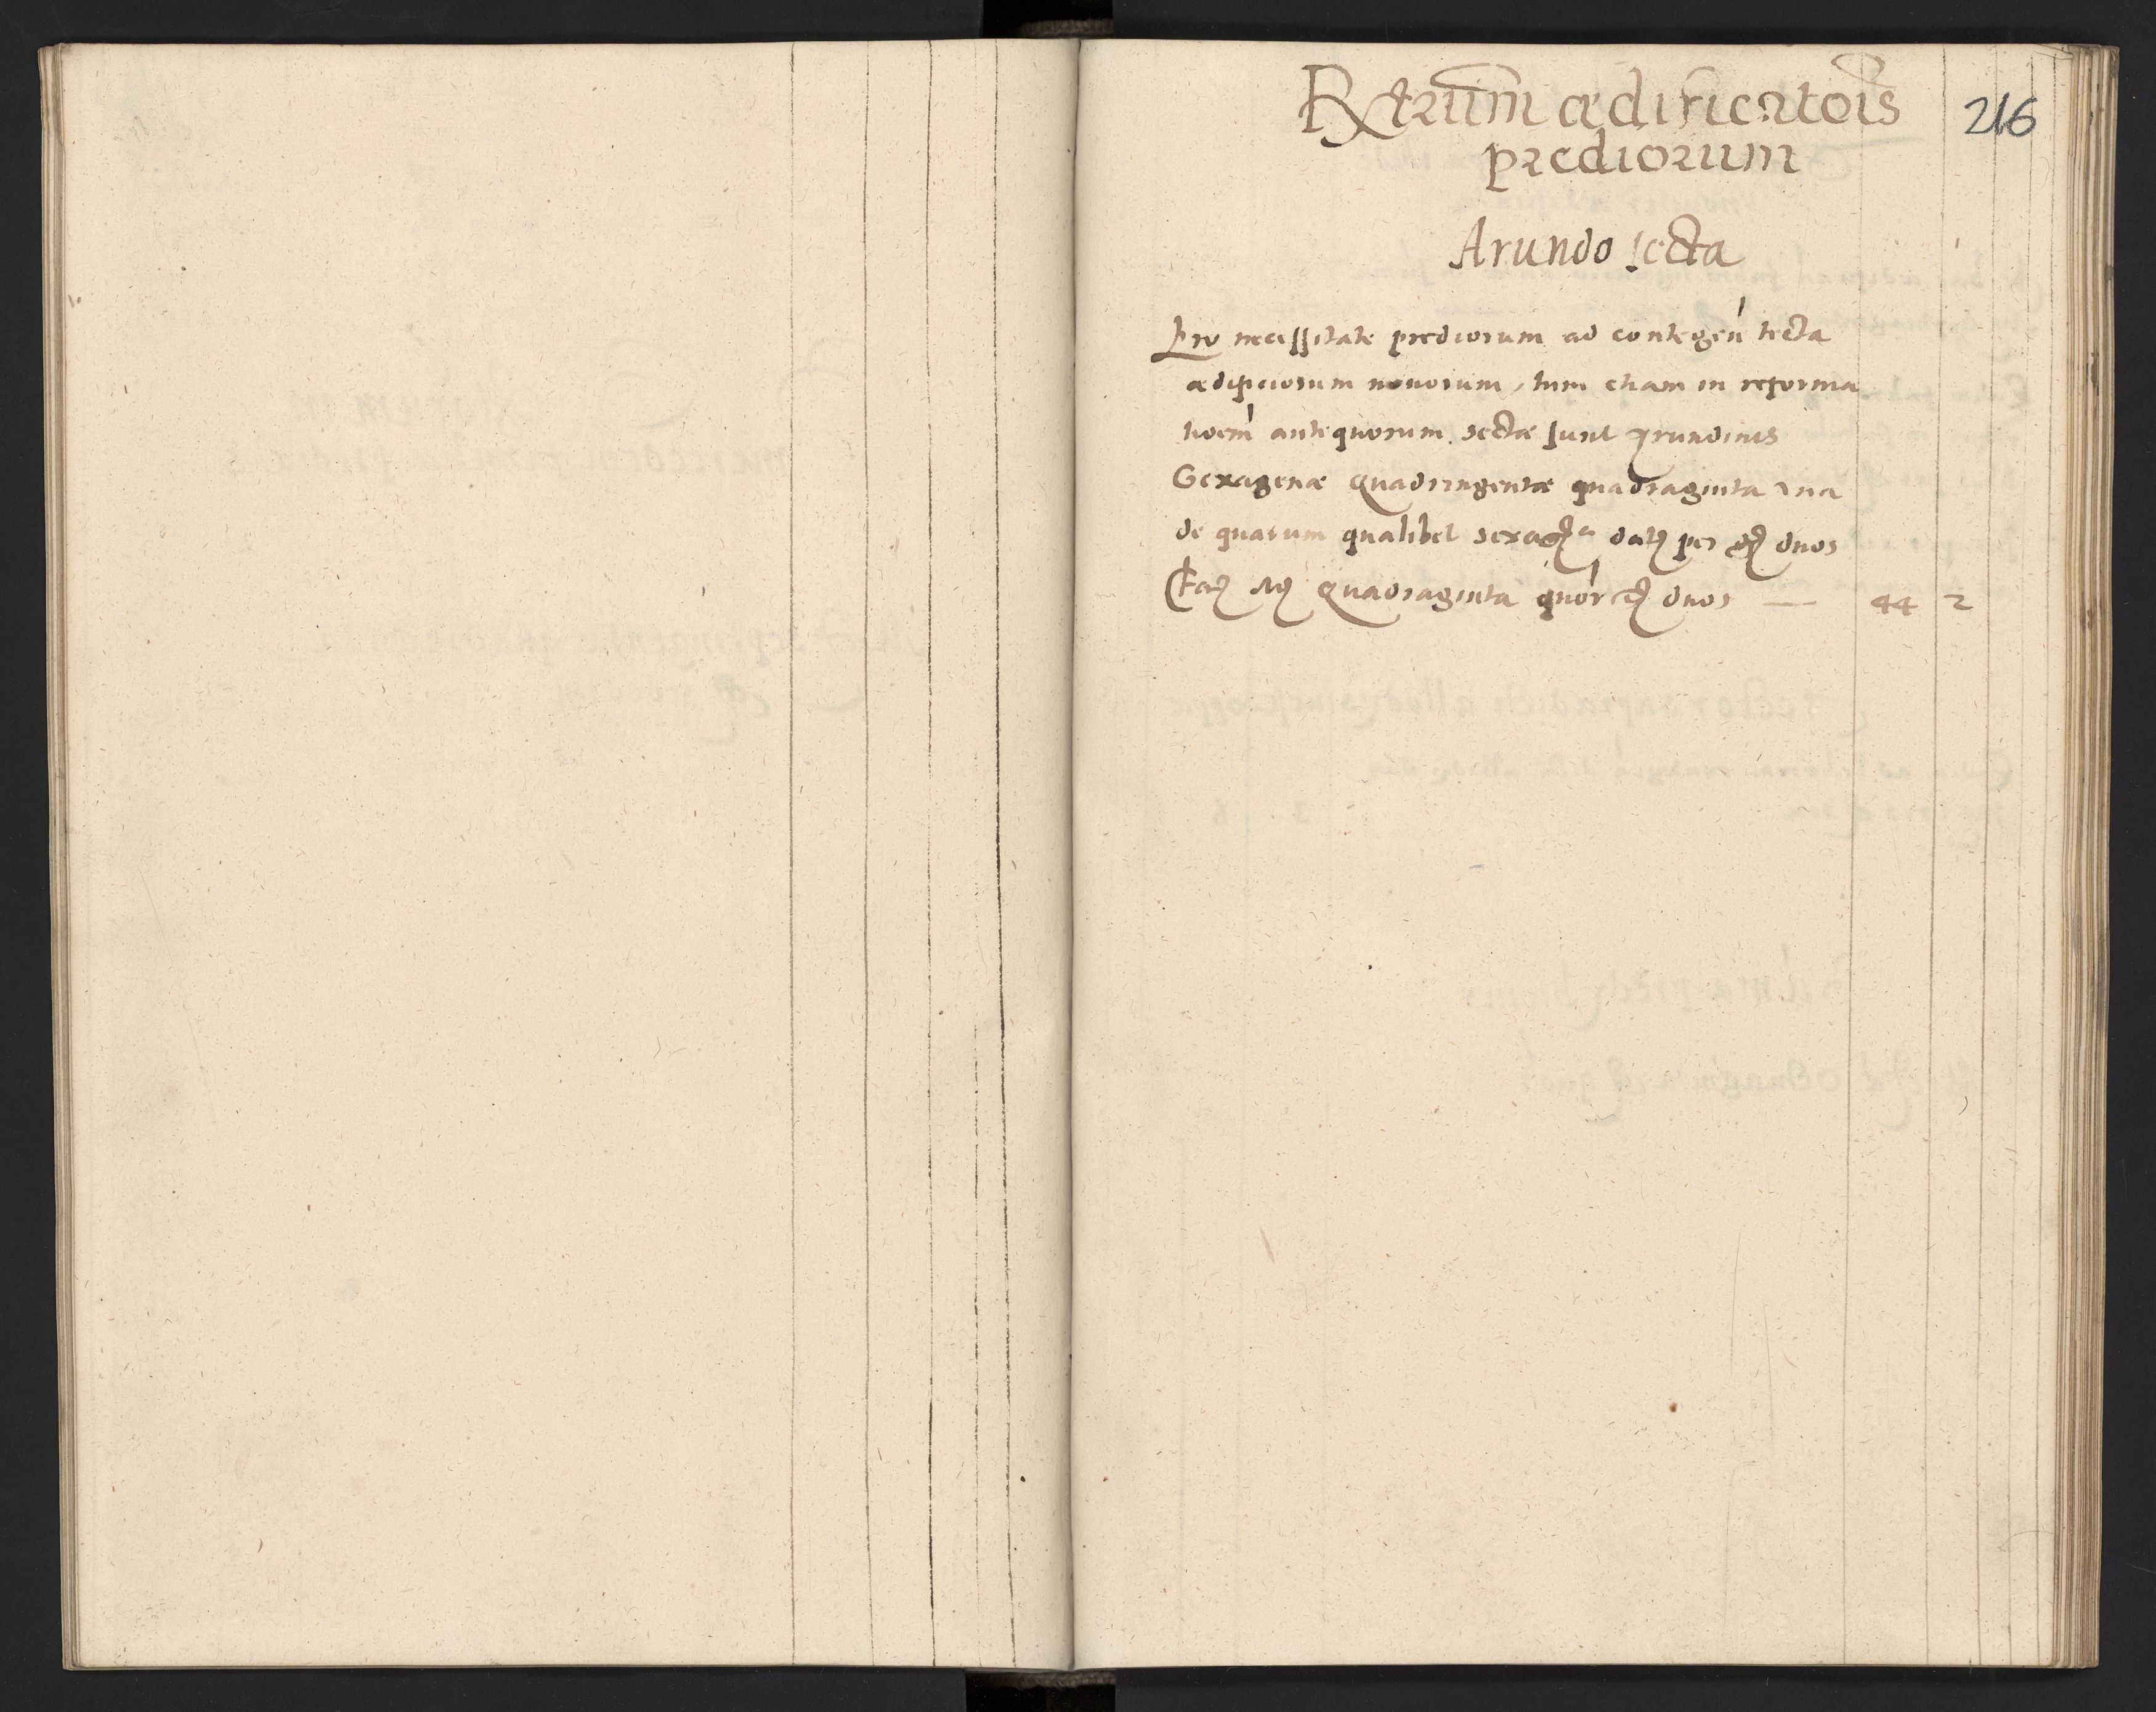 Rerum ædificatois
prediorum
216
Arundo secta
Pro necessitate prediorum ad contegen tecta
ædificiorum novorum, tum etiam in reforma
tioem antiquorum sectæ sunt arundines
Sexagenæ Quadringentæ quadraginta una
de quarum qualibet sexag dat per gr duos
facit Quadraginta quor gr duos — 44 2